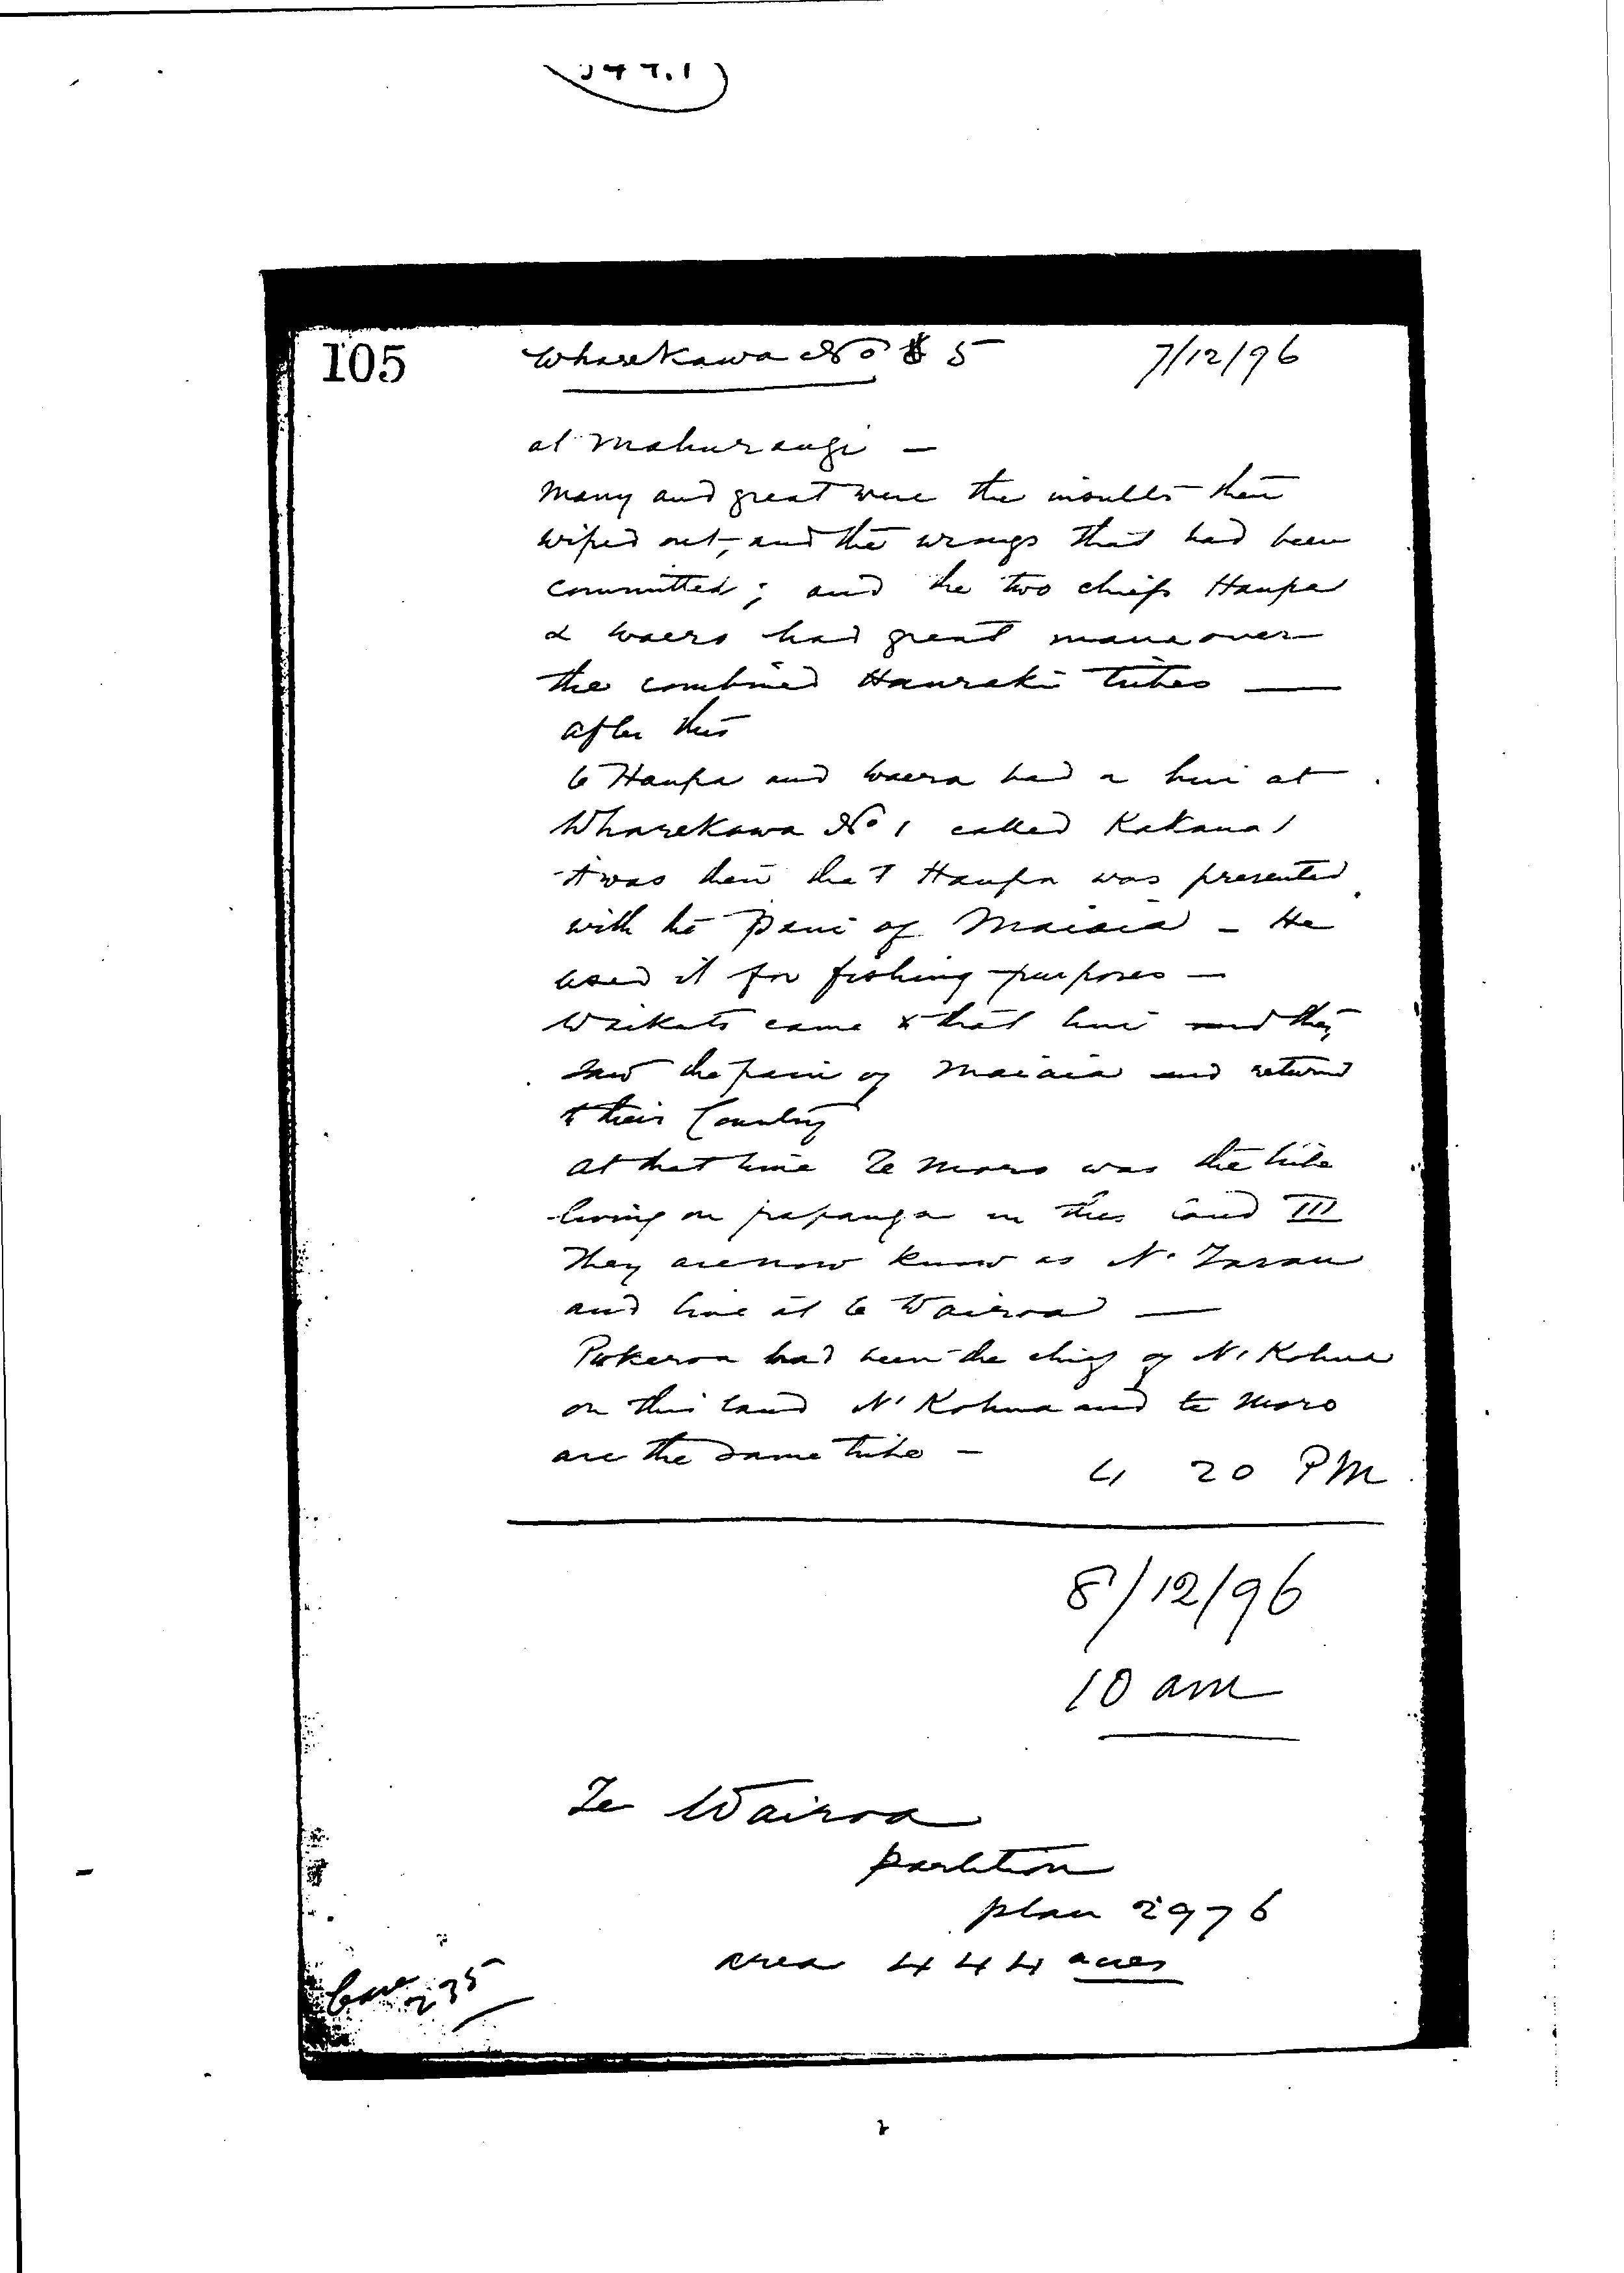 105 Wharekawa No 5 7/12/96
at Mahurangi —
Many and great were the insults then
wiped out, and the wrongs that had been
committed; and the two chiefs Haupa
& Waero had great mana over
the combined Hauraki tribes —
after this
Te Haupa and Waera had a hui at
Wharekawa No 1 called Kakana
it was then that Haupa was presented
with the pani of Maiaia — He
used it for fishing purposes —
Waikato came to that hui and they
saw the pani of Maiaia and returned
to their Country
at that time Te Moro was the tribe
living on papanga on this land III
They are now know as N. Tarau
and live at Te Wairoa —
Pokeroa had been the chief of N' Kohua
on this land N' Kohua and te Moro
are the same tribe —
4 20 PM
8/12/96
10 am
Te Wairoa
partition
plan 2976
area 444 acres
235